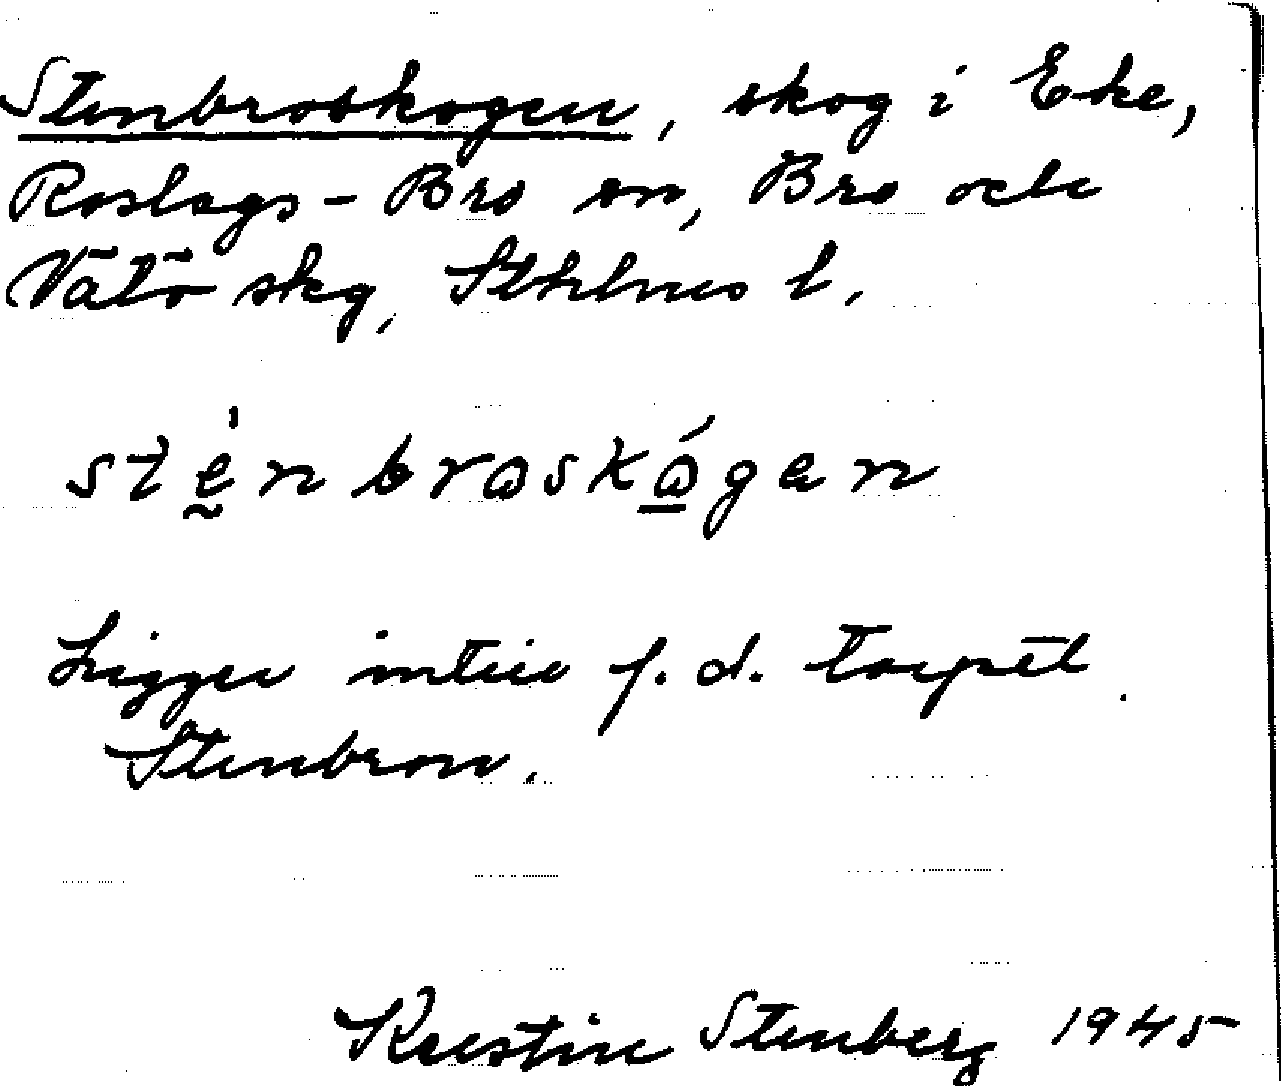 Stenbroskogen, skog i Eke,
Roslags-Bro sn, Bro och
Vätö skg, Sthlms l.
stḛ̀nbrωskώ̲gen
Ligger intill f.d. torpet
Stenbron.
Kerstin Stenberg 1945